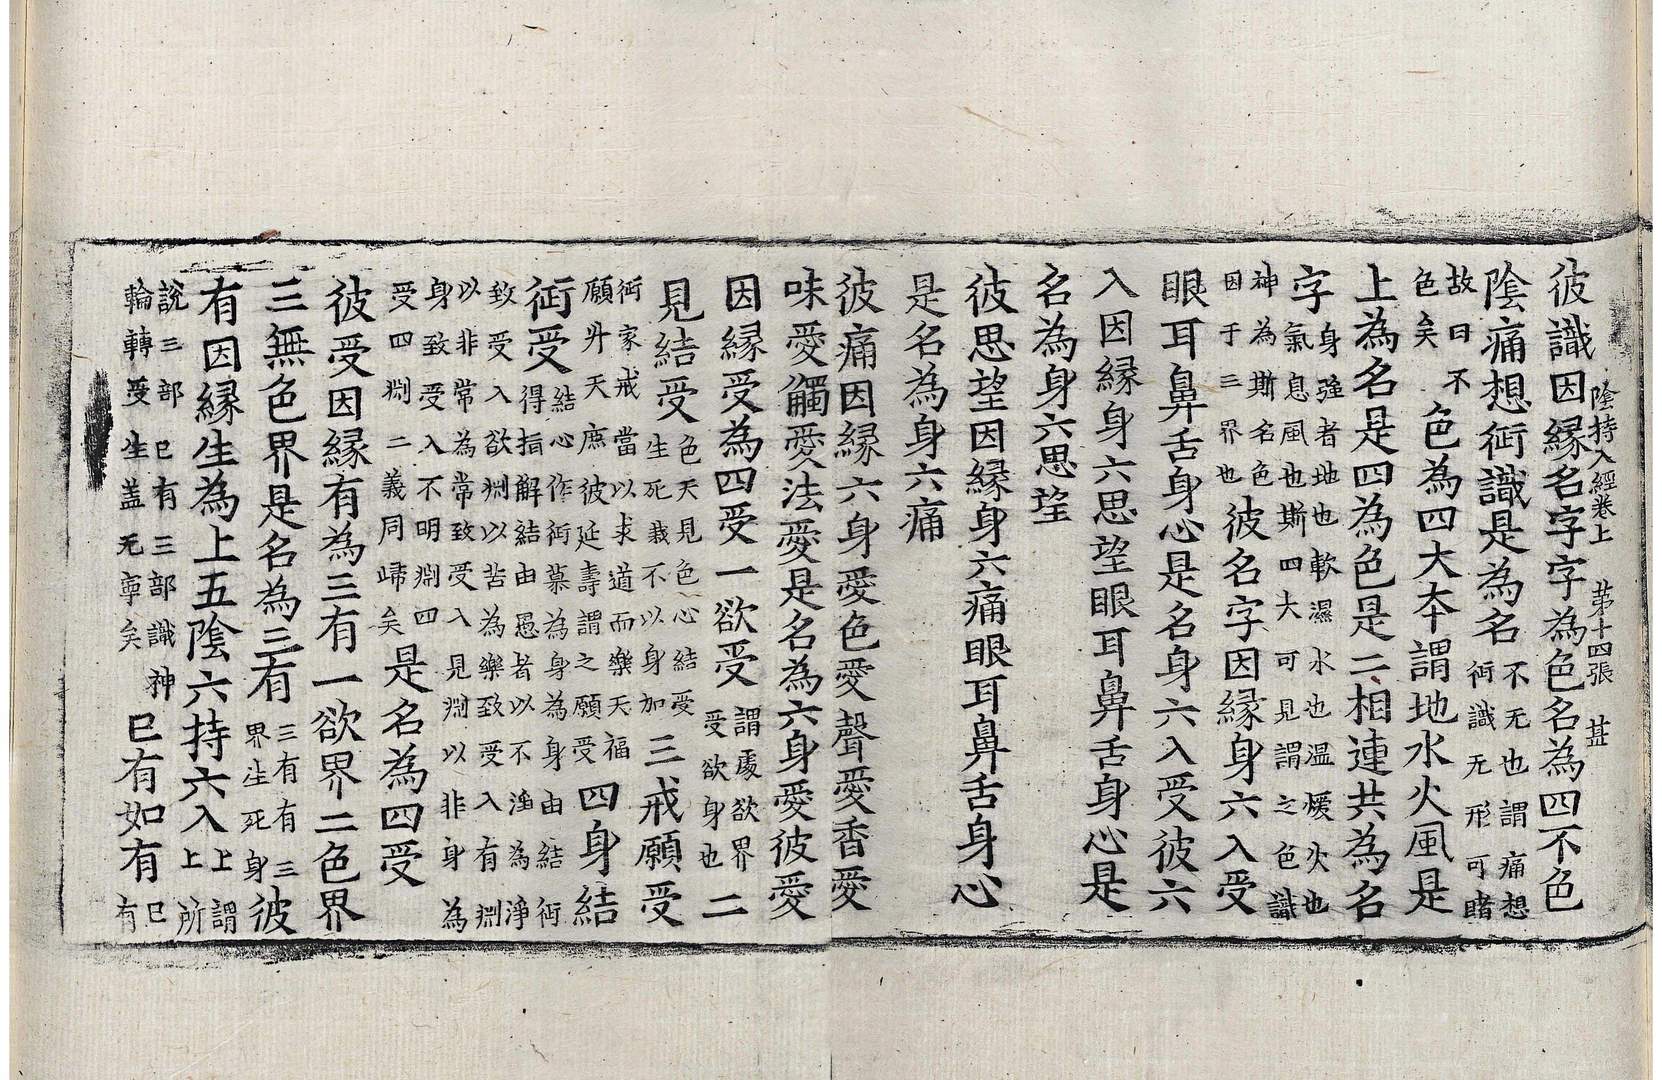 陰持入經卷上 苐十四張 甚
彼識因縁名字字為色名為四不色
陰痛想𧗪識是為名不无也謂痛想
𧗪識无形可睹
故曰不
色矣色為四大夲謂地水火風是
上為名是四為色是二相連共為名
字身強者地也軟濕水也温煖火也
氣息風也斯四大可見謂之色識
神為斯名色
因于三界也彼名字因縁身六入受
眼耳鼻舌身心是名身六入受彼六
入因縁身六思望眼耳鼻舌身心是
名為身六思望
彼思望因縁身六痛眼耳鼻舌身心
是名為身六痛
彼痛因縁六身愛愛色愛聲愛香愛
味愛觸愛法愛是名為六身愛彼愛
因縁受為四受一欲受謂處欲界
受欲身也二
見結受色天見色心結受
生死栽不以身加三戒願受
𧗪家戒當以求道而樂天福
願升天庶彼延壽謂之願受四身結
𧗪受結心作𧗪慕為身為身由結𧗪
得指解結由愚者以不淨為淨
致受入欲渕以苦為樂致受入有渕
以非常為常致受入見渕以非身為
身致受入不明渕四
受四渕二義同歸矣是名為四受
彼受因縁有為三有一欲界二色界
三無色界是名為三有三有有三
界生死身彼
有因縁生為上五陰六持六入上謂
上所
說三部已有三部識神
輪轉受生盖无寧矣已有如有已
有